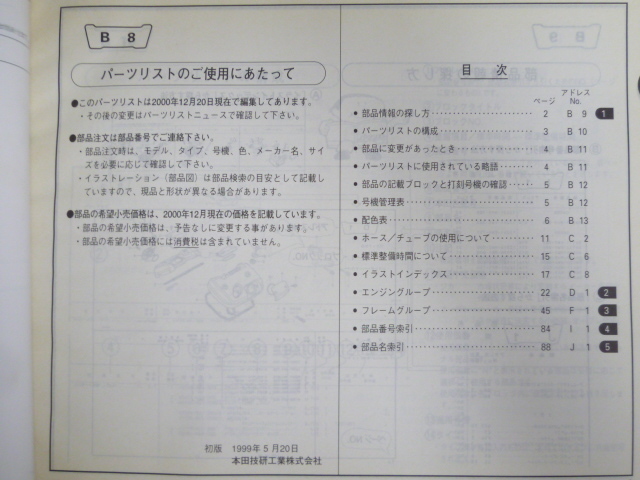 B 8
パーツリストのご使用にあたって
●このパーツリストは2000年12月20日現在で編集してあります。
・その後の変更はパーツリストニュースで確認して下さい。
●部品注文は部品番号でご連絡下さい。
・部品注文時は、モデル、タイプ、号機、色、メーカー名、サイ
ズを必要に応じて確認して下さい。
・イラストレーション（部品図）は部品検索の目安として記載し
ていますので、現品と形状が異なる場合があります。
●部品の希望小売価格は、2000年12月現在の価格を記載しています。
・部品の希望小売価格は、予告なしに変更する事があります。
・部品の希望小売価格には消費税は含まれていません。
初版 1999年5月20日
本田技研工業株式会社
目 次
ページ アドレスNo.
• 部品情報の探し方 2 B 9 1
• パーツリストの構成 3 B 10
• 部品に変更があったとき 4 B 11
• パーツリストに使用されている略語 4 B 11
• 部品の記載ブロックと打刻号機の確認 5 B 12
• 号機管理表 5 B 12
• 配色表 6 B 13
• ホース／チューブの使用について 11 C 2
• 標準整備時間について 15 C 6
• イラストインデックス 17 C 8
• エンジングループ 22 D 1 2
• フレームグループ 45 F 1 3
• 部品番号索引 84 I 1 4
• 部品名索引 88 J 1 5